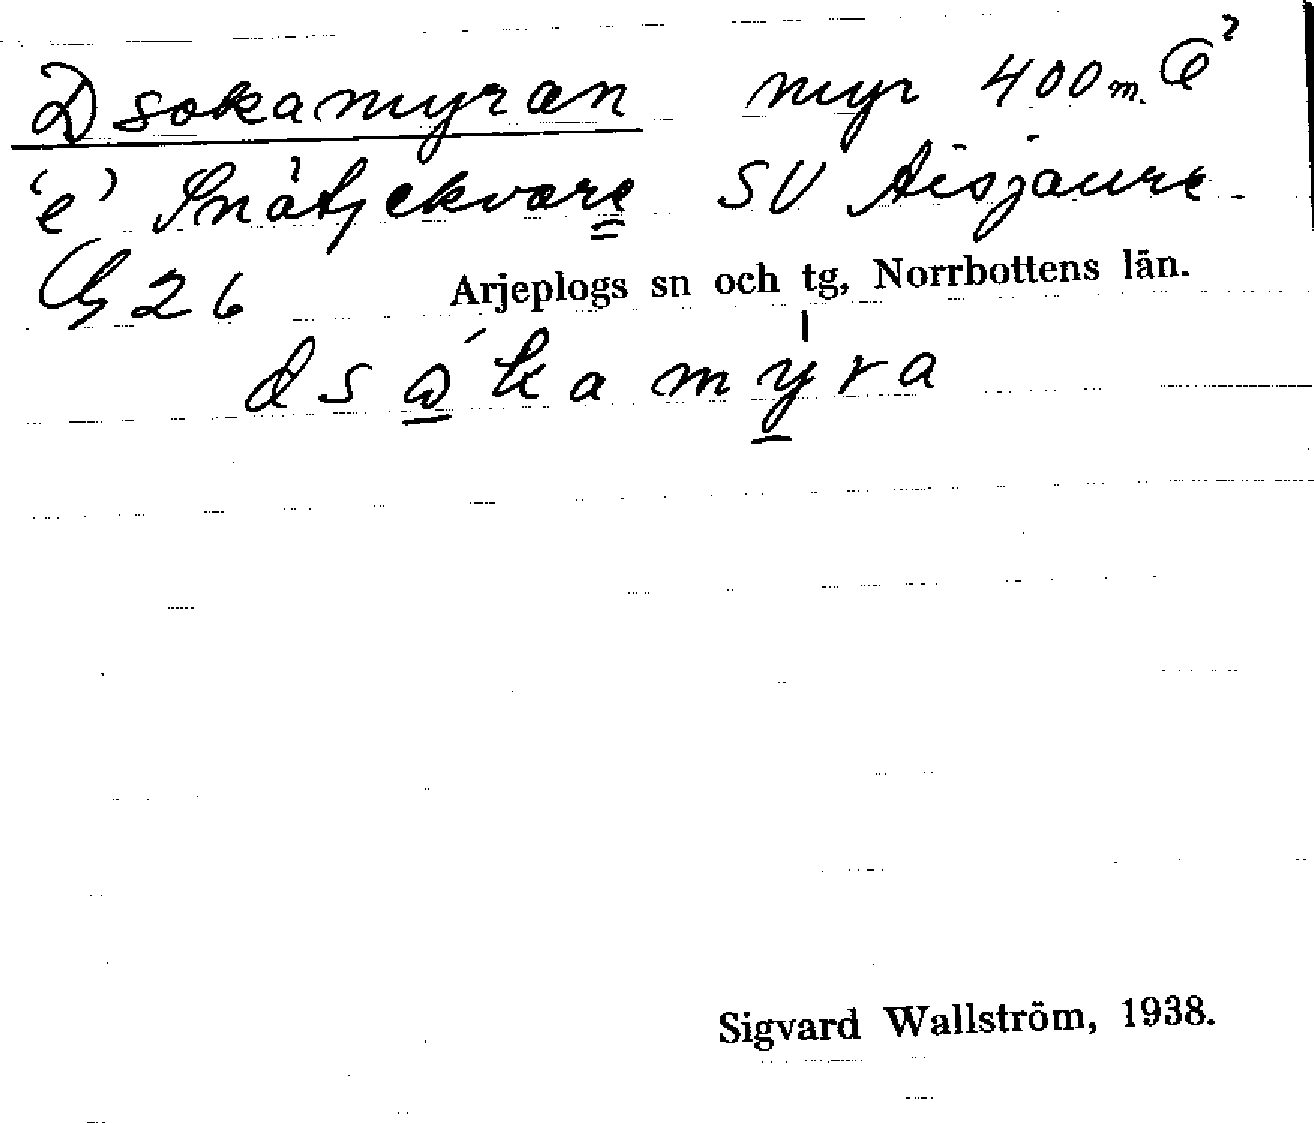 Dsokamyran myr 400 m.
Snåtjekvare SV Aisjaure
G 26 Arjeplogs sn och tg, Norrbottens län.
Sigvard Wallström, 1938.